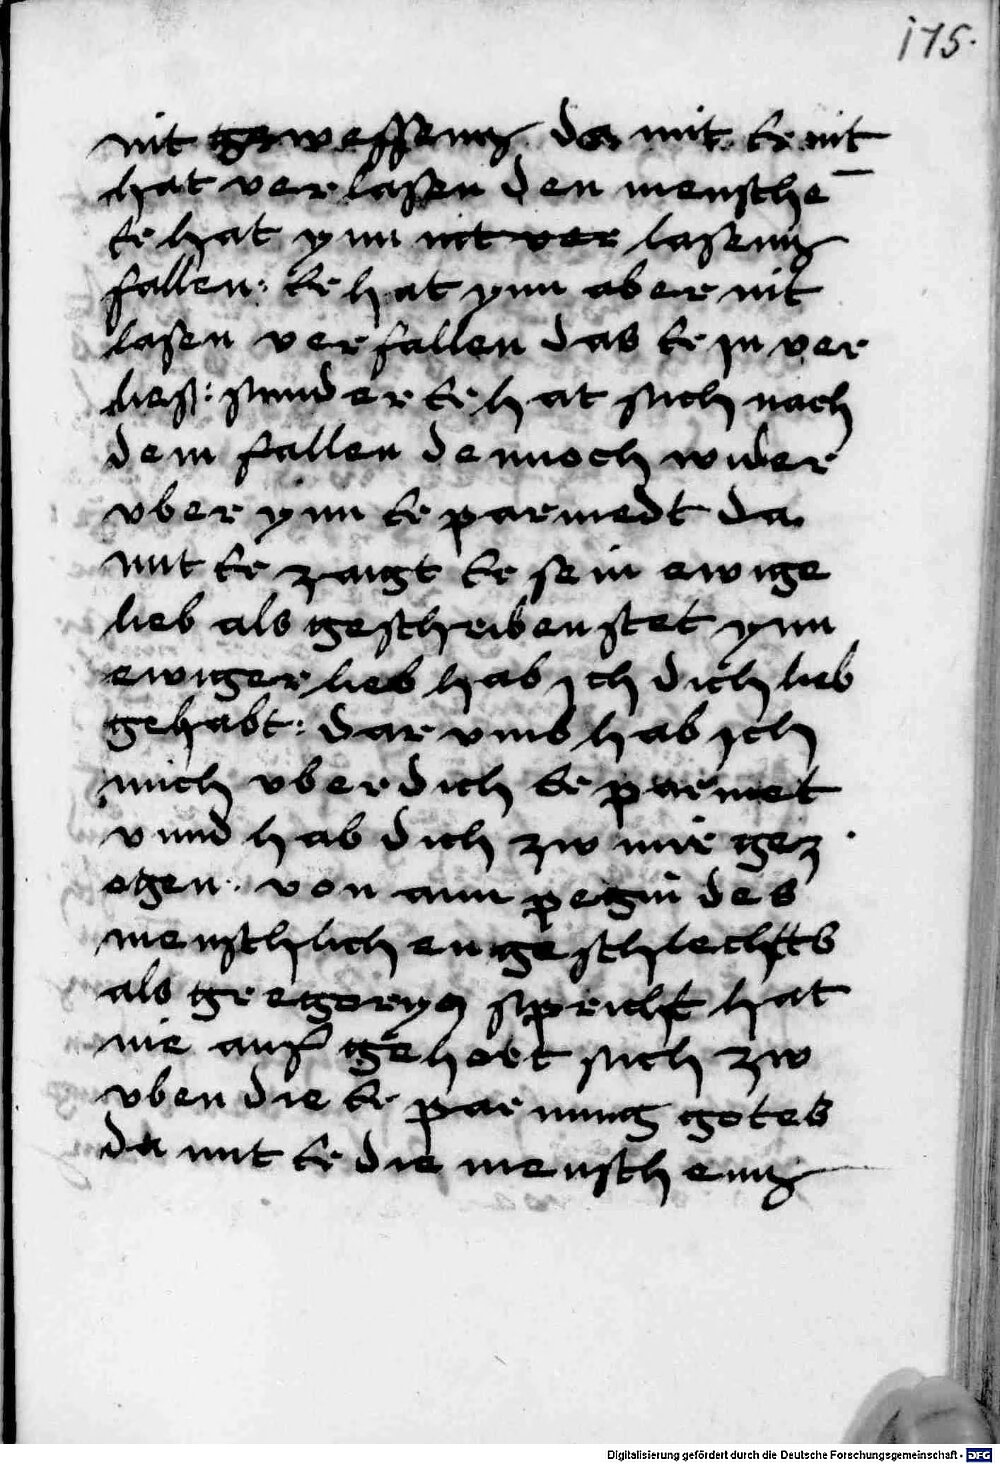 175.
nit gewessenn da mit Er nit
hat verlassen den mensche̅
Er hat ynn nit ver lassenn
fallen: Er hat ynn aber nit
lasen verfallen das Er in ver
ließ: sunnder Er hat sich nach
dem fallen dennoch wider
vber ynn Erparmedt da
mit Er zaigt Er sein ewige
lieb als geschriben stet ynn
ewiger lieb hab ich dich lieb
gehabt: dar vmb hab ich
mich vber dich Erparmet
vnnd hab dich zw mir gez
ogen: von ann pegin des
menschlichen geschlechts
als gregoryus spricht hat
nie auf gehort sich zw
vben die Erparnung gotes
da mit Er die menschenn
Digitalisierung gefördert durch die Deutsche Forschungsgemeinschaft - DFG